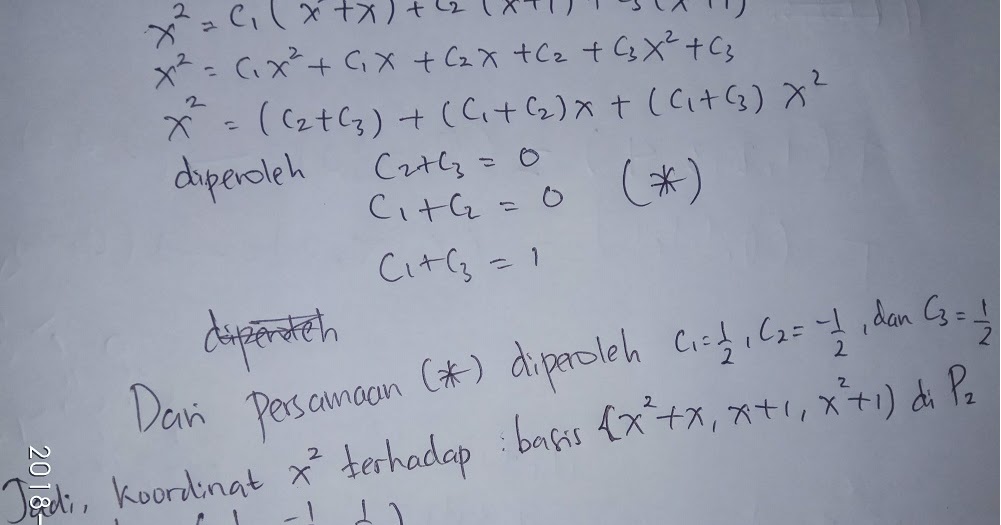 x² = C₁(x²+x) + C₂(x+1) + C₃(x²+1)
x² = C₁x² + C₁x + C₂x + C₂ + C₃x² + C₃
x² = (C₂+C₃) + (C₁+C₂)x + (C₁+C₃) x²
diperoleh C₂+C₃ = 0
C₁+C₂ = 0 (*)
C₁+C₃ = 1
diperoleh
Dari persamaan (*) diperoleh C₁=1/2, C₂=-1/2, dan C₃=1/2
Jadi, koordinat x² terhadap : basis {x²+x, x+1, x²+1) di P₂
-1 1 )
2018-